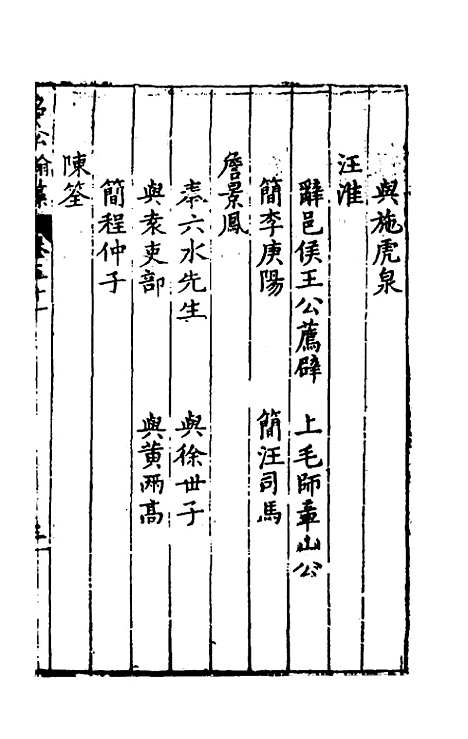 與施虎泉
汪淮
辭邑侯王公薦辟　上毛師章山公
簡李庚陽　簡汪司馬
詹景鳳
柬六水先生　與徐世子
與袁吏部　與黃兩高
簡程仲子
陳筌